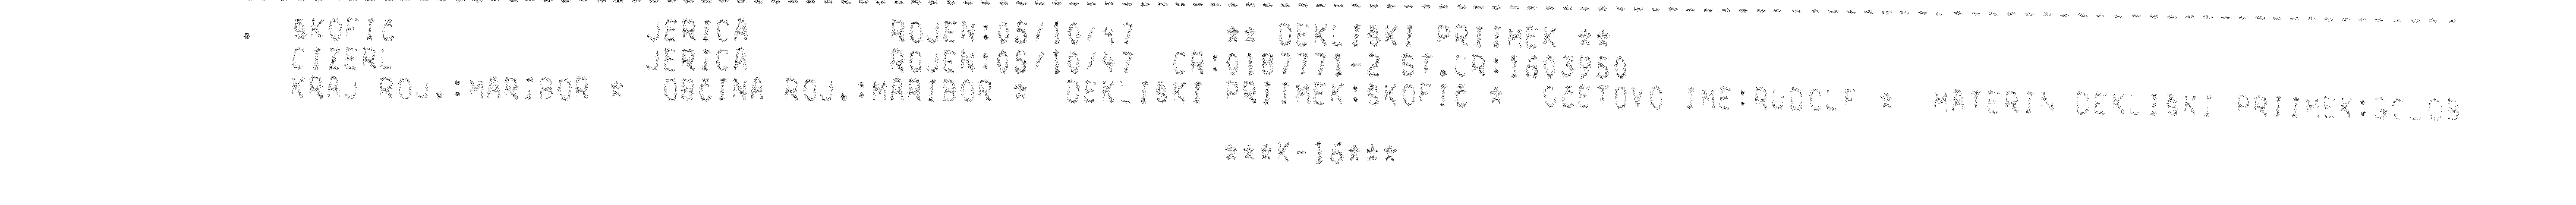 . ŠKOFIČ JERICA ROJEN:05/10/47 ** DEKLIŠKI PRIIMEK **
CIZERL JERICA ROJEN:05/10/47 CR:0187771-2 ST.CR:1603950
KRAJ ROJ.:MARIBOR * OBČINA ROJ.:MARIBOR * DEKLIŠKI PRIIMEK:ŠKOFIČ * OČETOVO IME:RUDOLF * MATERIN DEKLIŠKI PRIIMEK:
***K-16***